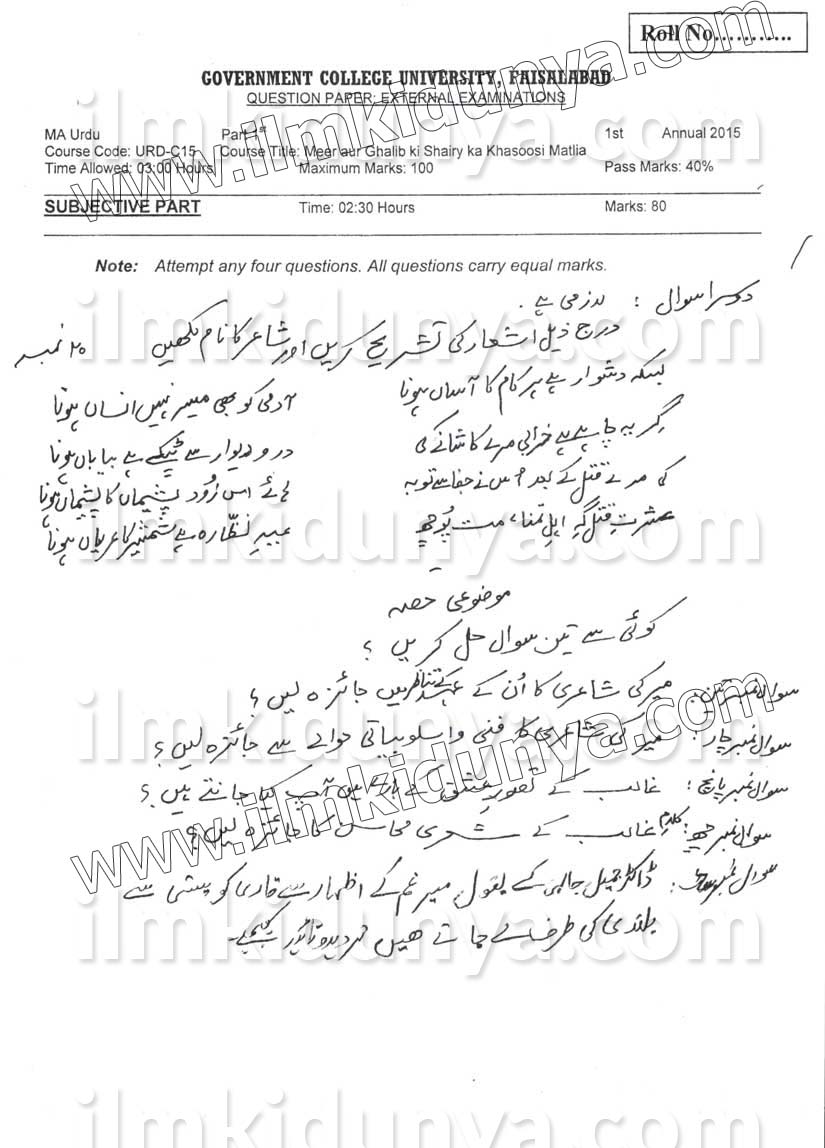 Roll No...........
GOVERNMENT COLLEGE UNIVERSITY, FAISALABAD
QUESTION PAPER: EXTERNAL EXAMINATIONS
MA Urdu Part-1st 1st Annual 2015
Course Code: URD-C15 Course Title: Meer aur Ghalib ki Shairy ka Khasoosi Matlia
Time Allowed: 03:00 Hours Maximum Marks: 100 Pass Marks: 40%
SUBJECTIVE PART Time: 02:30 Hours Marks: 80
Note: Attempt any four questions. All questions carry equal marks.
دوسرا سوال : لازمی ہے .
درج ذیل اشعار کی تشریح کریں اور شاعر کا نام لکھیں ۲۰ نمبر
بسکہ دشوار ہے ہر کام کا آساں ہونا آدمی کو بھی میسر نہیں انساں ہونا
گریہ چاہے ہے خرابی مرے کاشانے کی در و دیوار سے ٹپکے ہے بیاباں ہونا
کی مرے قتل کے بعد اس نے جفا سے توبہ ہائے اس زُود پشیماں کا پشیماں ہونا
عشرتِ قتل گہِ اہلِ تمنا، مت پُوچھ عیدِ نظّارہ ہے شمشیر کا عریاں ہونا
موضوعی حصہ
کوئی سے تین سوال حل کریں ؟
سوال نمبر تین: میر کی شاعری کا اُن کے عہد کے تناظر میں جائزہ لیں ؟
سوال نمبر چار: میر کی شاعری کا فنی و اسلوبیاتی حوالے سے جائزہ لیں ؟
سوال نمبر پانچ: غالب کے تصورِ عشق کے بارے میں آپ کیا جانتے ہیں ؟
سوال نمبر چھ: کلامِ غالب کے شعری محاسن کا جائزہ لیں ؟
سوال نمبر سات: ڈاکٹر جمیل جالبی کے بقول میر غم کے اظہار سے قاری کو پستی سے
بلندی کی طرف لے جاتے ھیں تردید و تائید کیجیے۔
www.ilmkidunya.com
ilmkidunya.com